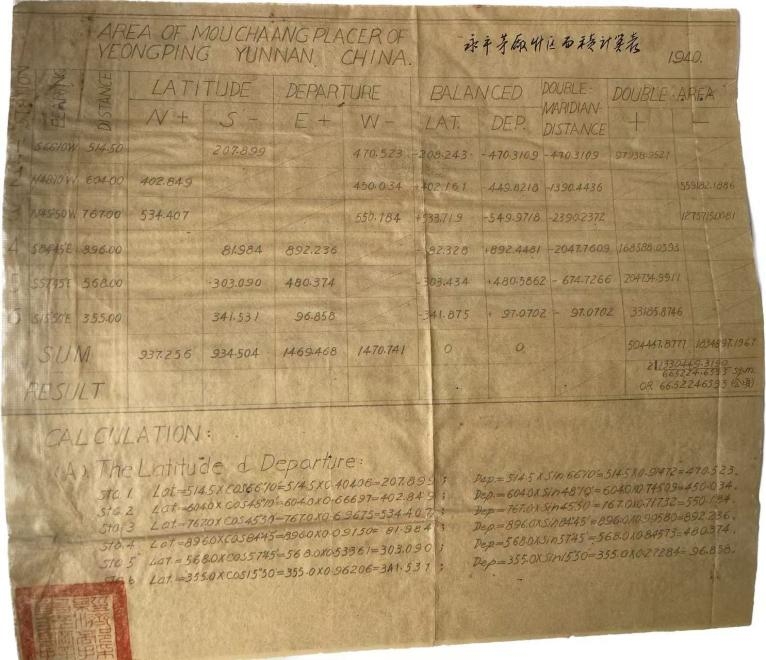 AREA OF MOUCHAANG PLACER OF
YEONGPING YUNNAN, CHINA.
永平茅厰 区面積計算表
1940.
STATION BEARING DISTANCE LATITUDE DEPARTURE BALANCED DOUBLE-MARIDIAN-DISTANCE DOUBLE AREA
N + S - E + W - LAT. DEP. + -
S6610W 514.50 207.899 470.523 -208.243 -470.3109 -470.3109 97938.9521
N4810W 604.00 402.849 450.034 +402.161 449.8218 -1390.4436 559182.1886
N4550W 767.00 534.407 550.184 +533.719 -549.9718 -2390.2372 1275715.0081
4 S8445E 896.00 81.984 892.236 -82.328 +892.4481 -2047.7609 168588.0593
5 S5745E 568.00 -303.090 480.374 -303.434 +480.5862 -674.7266 204734.9911
6 S1550E 355.00 341.531 96.858 -341.875 +97.0702 -97.0702 33185.8746
SUM 937.256 934.504 1469.468 1470.741 0 0 504447.8777 1834897.1967
2)1330449.3190
665224.6595 sq.m.
RESULT OR 66.52246595
CALCULATION:
(A) The Latitude & Departure:
Sta. 1 Lat.=514.5XCos6610=514.5X0.40406=207.899; Dep.=514.5XSin6610=514.5X0.91472=470.523.
Sta. 2 Lat.=604.0XCos4810=604.0X0.66697=402.849; Dep.=604.0XSin4810=604.0X0.74509=450.034.
Sta. 3 Lat.=767.0XCos4550=767.0X0.69675=534.407; Dep.=767.0XSin4550=767.0X0.71732=550.184.
Sta. 4 Lat.=896.0XCos8445=896.0X0.09150=81.984; Dep.=896.0XSin8445=896.0X0.99580=892.236.
Sta. 5 Lat.=568.0XCos5745=568.0X0.53361=303.090; Dep.=568.0XSin5745=568.0X0.84573=480.374.
Sta. 6 Lat.=355.0XCos1550=355.0X0.96206=341.531; Dep.=355.0XSin1550=355.0X0.27284=96.858.